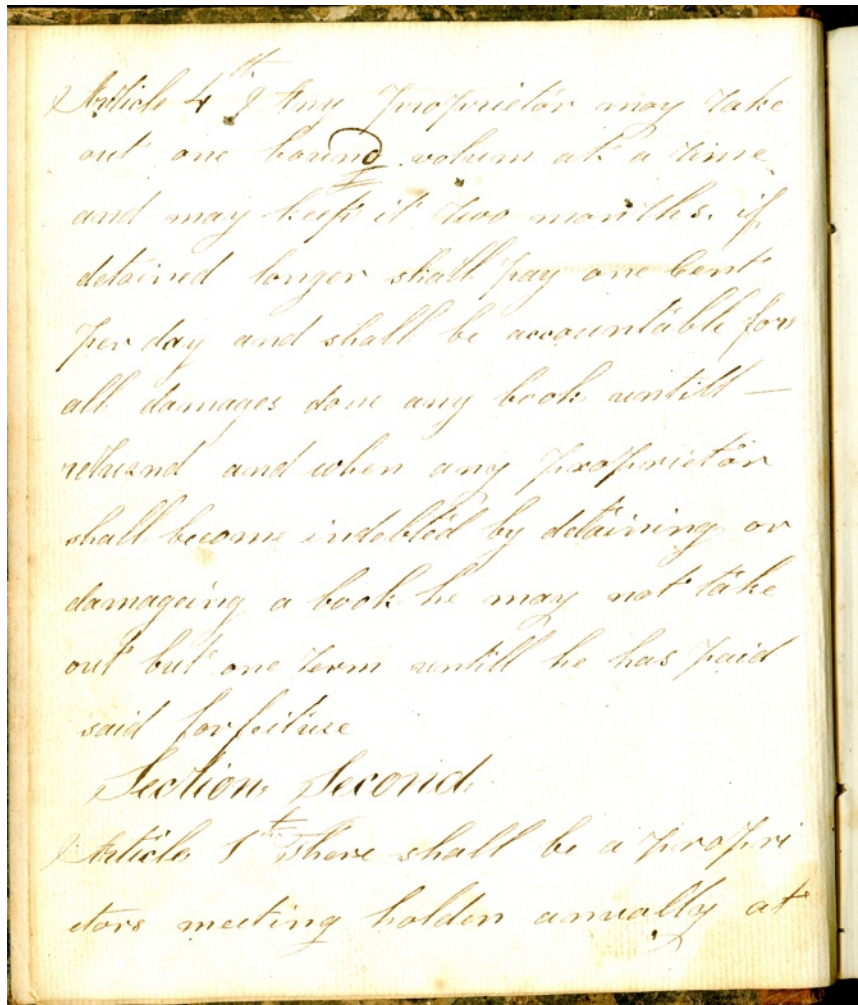 Article 4th Any proprietor may take
out one bound volum at a time
and may keep it two months. if
detained longer shall pay one Cent
per day and shall be accountable for
all damages done any book untill —
returnd and when any proprietor
shall become indebted by detaining or
damageing a book he may not take
out but one term untill he has paid
said forfeiture
Section Second
Article 1st There shall be a propri
etors meeting holden anually at